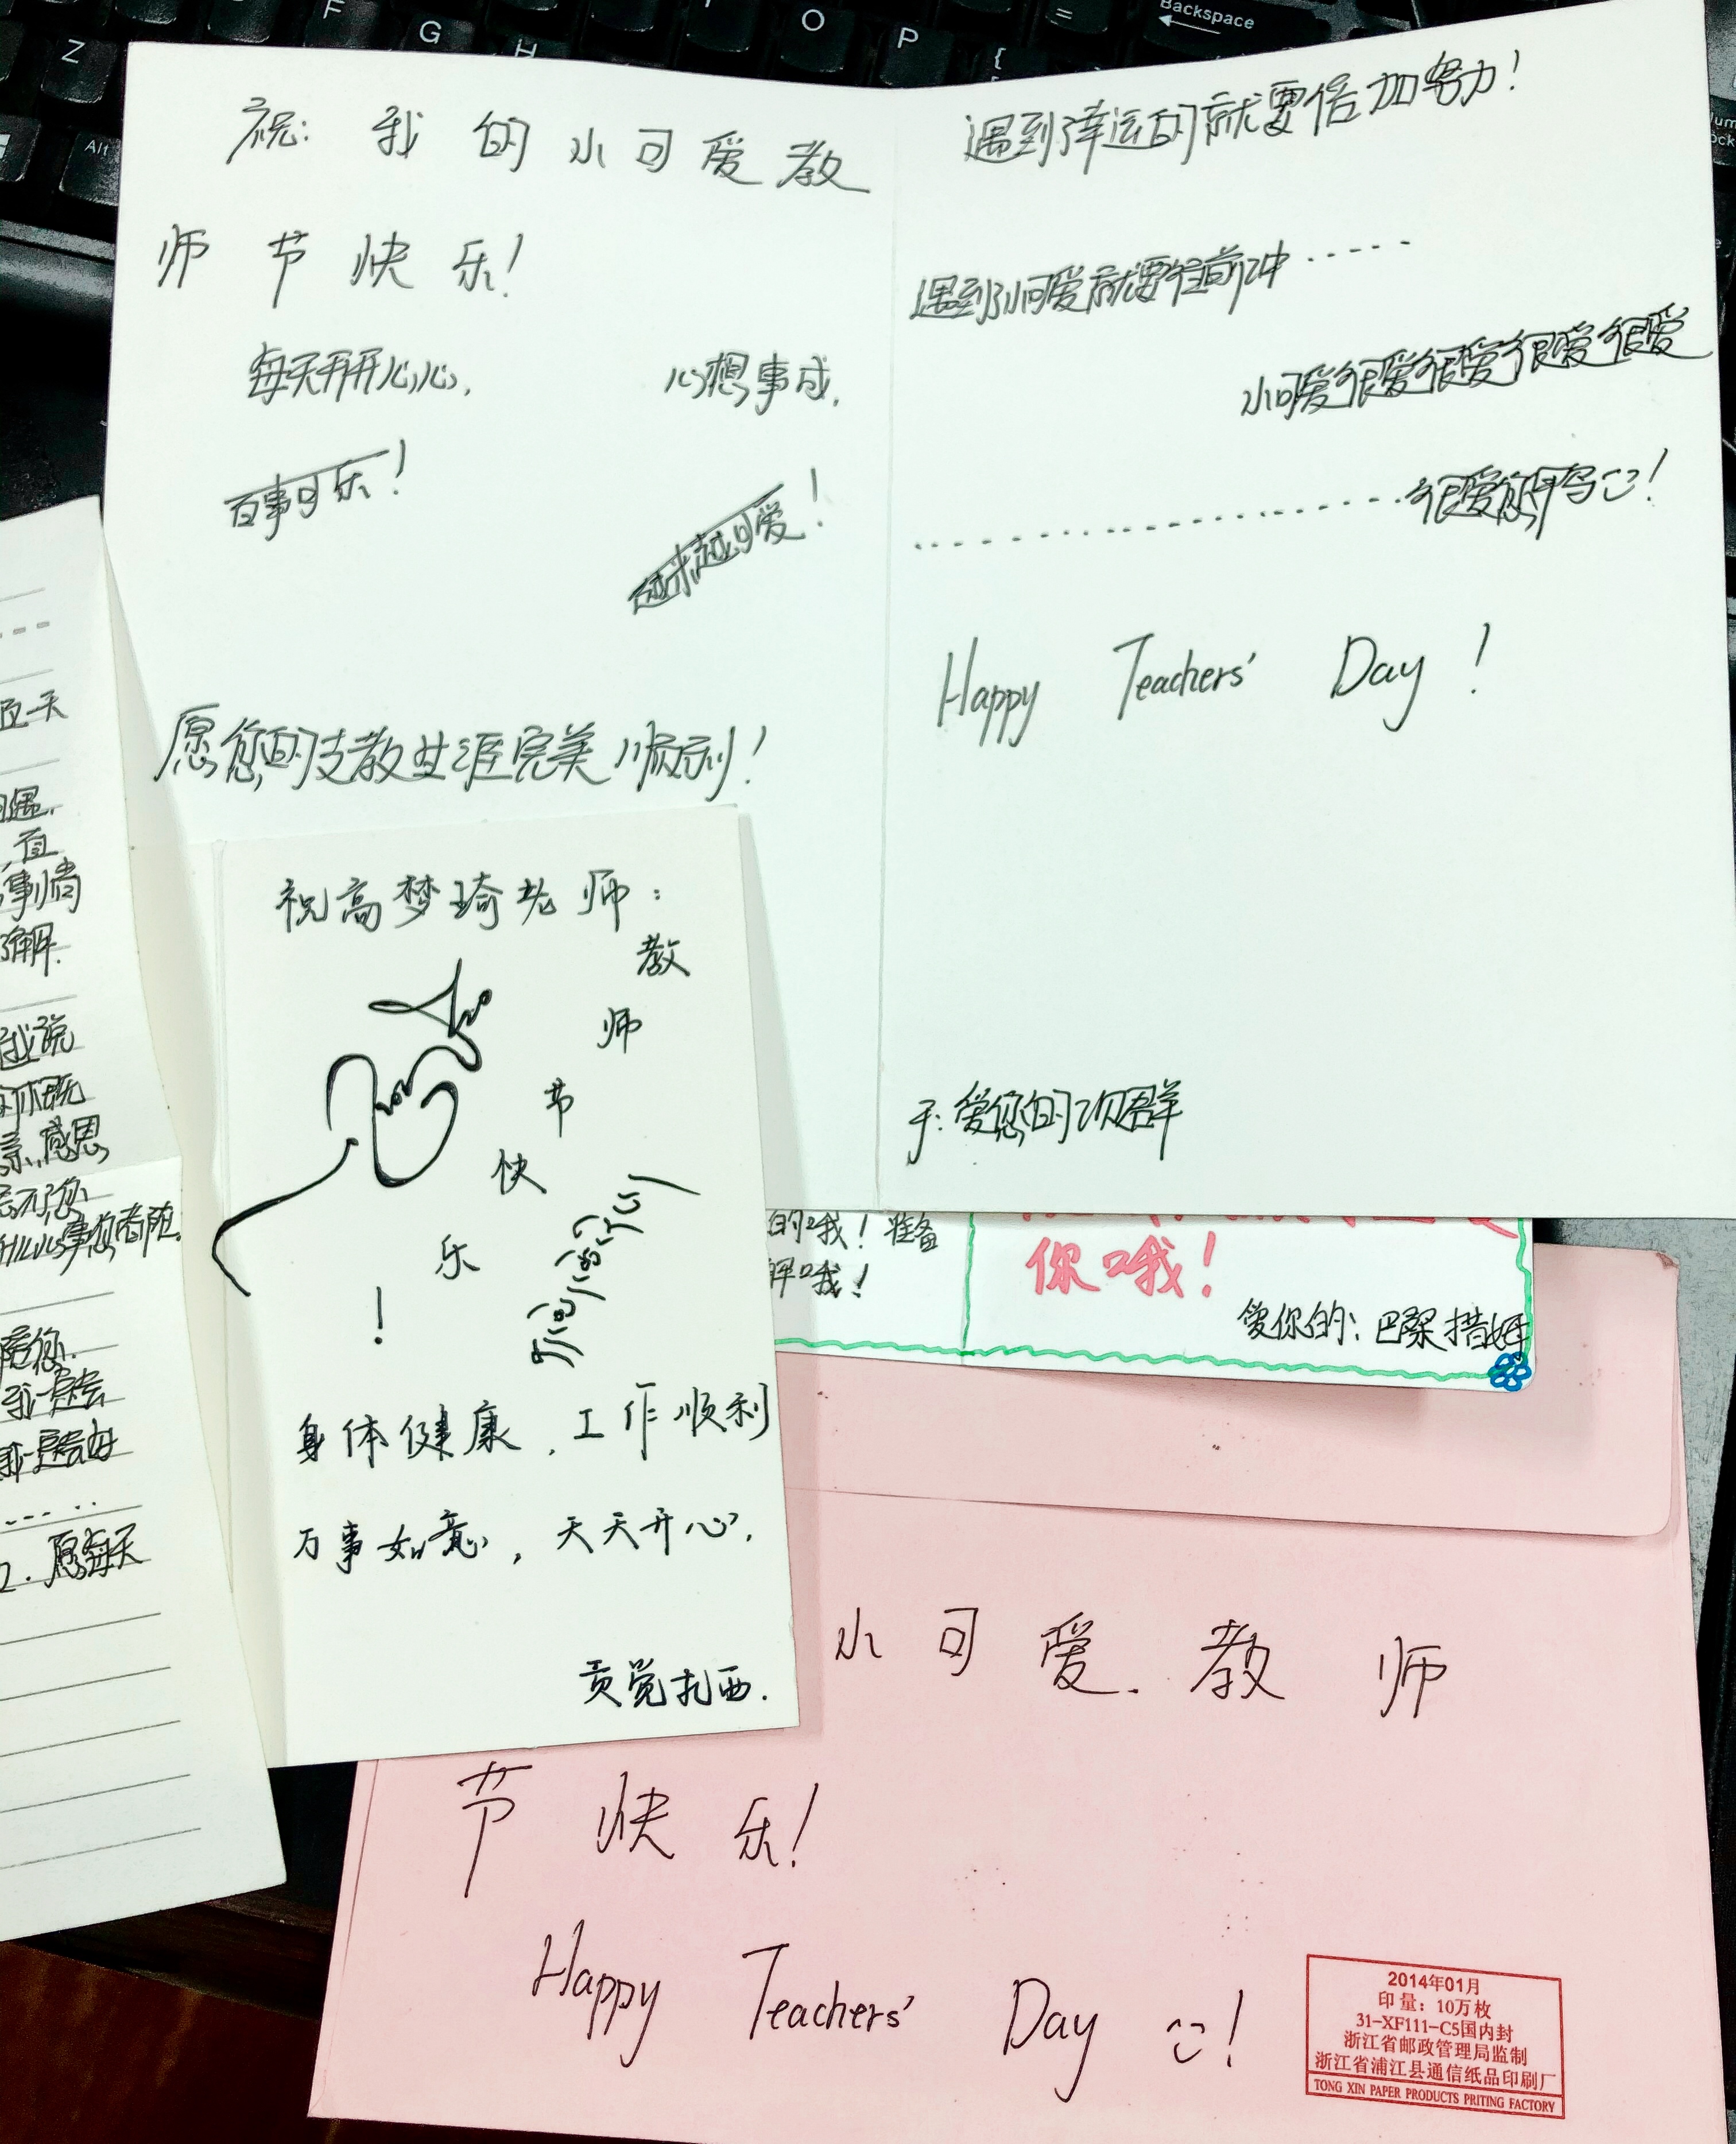 祝：我的小可爱教
师节快乐！
每天开开心心，
心想事成，
百事可乐！
越来越可爱！
愿您的支教生涯完美顺利！
遇到幸运的就要倍加努力！
遇到小可爱就要往前冲······
小可爱很爱很爱很爱很爱
很爱您
Happy Teachers' Day！
于：爱您的次群
祝高梦琦老师：
教
师
节
快
乐
！
身体健康，工作顺利
万事如意，天天开心，
贡觉扎西.
的哦！准备
哦！
你哦！
爱你的：巴桑措姆
一天
遇.
直
事情
了解.
我说
感恩
愿每天
小可爱.教师
节快乐！
Happy Teachers' Day！
2014年01月
印量：10万枚
31-XF111-C5国内封
浙江省邮政管理局监制
浙江省浦江县通信纸品印刷厂
TONG XIN PAPER PRODUCTS PRITING FACTORY
Z
F
G
H
O
P
{
[
=
Backspace
Alt